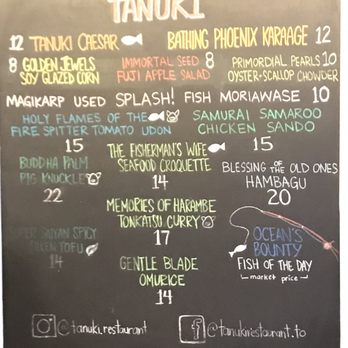 TANUKI
12 TANUKI CAESAR
BATHING PHOENIX KARAAGE 12
8 GOLDEN JEWELS
SOY GLAZED CORN
IMMORTAL SEED 8
FUJI APPLE SALAD
PRIMORDIAL PEARLS 10
OYSTER-SCALLOP CHOWDER
MAGIKARP USED SPLASH! FISH MORIAWASE 10
HOLY FLAMES OF THE
FIRE SPITTER TOMATO UDON
15
SAMURAI SAMAROO
CHICKEN SANDO
15
BUDDHA PALM
PIG KNUCKLE
22
THE FISHERMAN'S WIFE
SEAFOOD CROQUETTE
14
BLESSING OF THE OLD ONES
HAMBAGU
20
MEMORIES OF HARAMBE
TONKATSU CURRY
17
SUPER SAIYAN SPICY
GREEN TOFU
14
OCEAN'S
BOUNTY
FISH OF THE DAY
market price
GENTLE BLADE
OMURICE
14
@tanuki.restaurant
f @tanukirestaurant.to